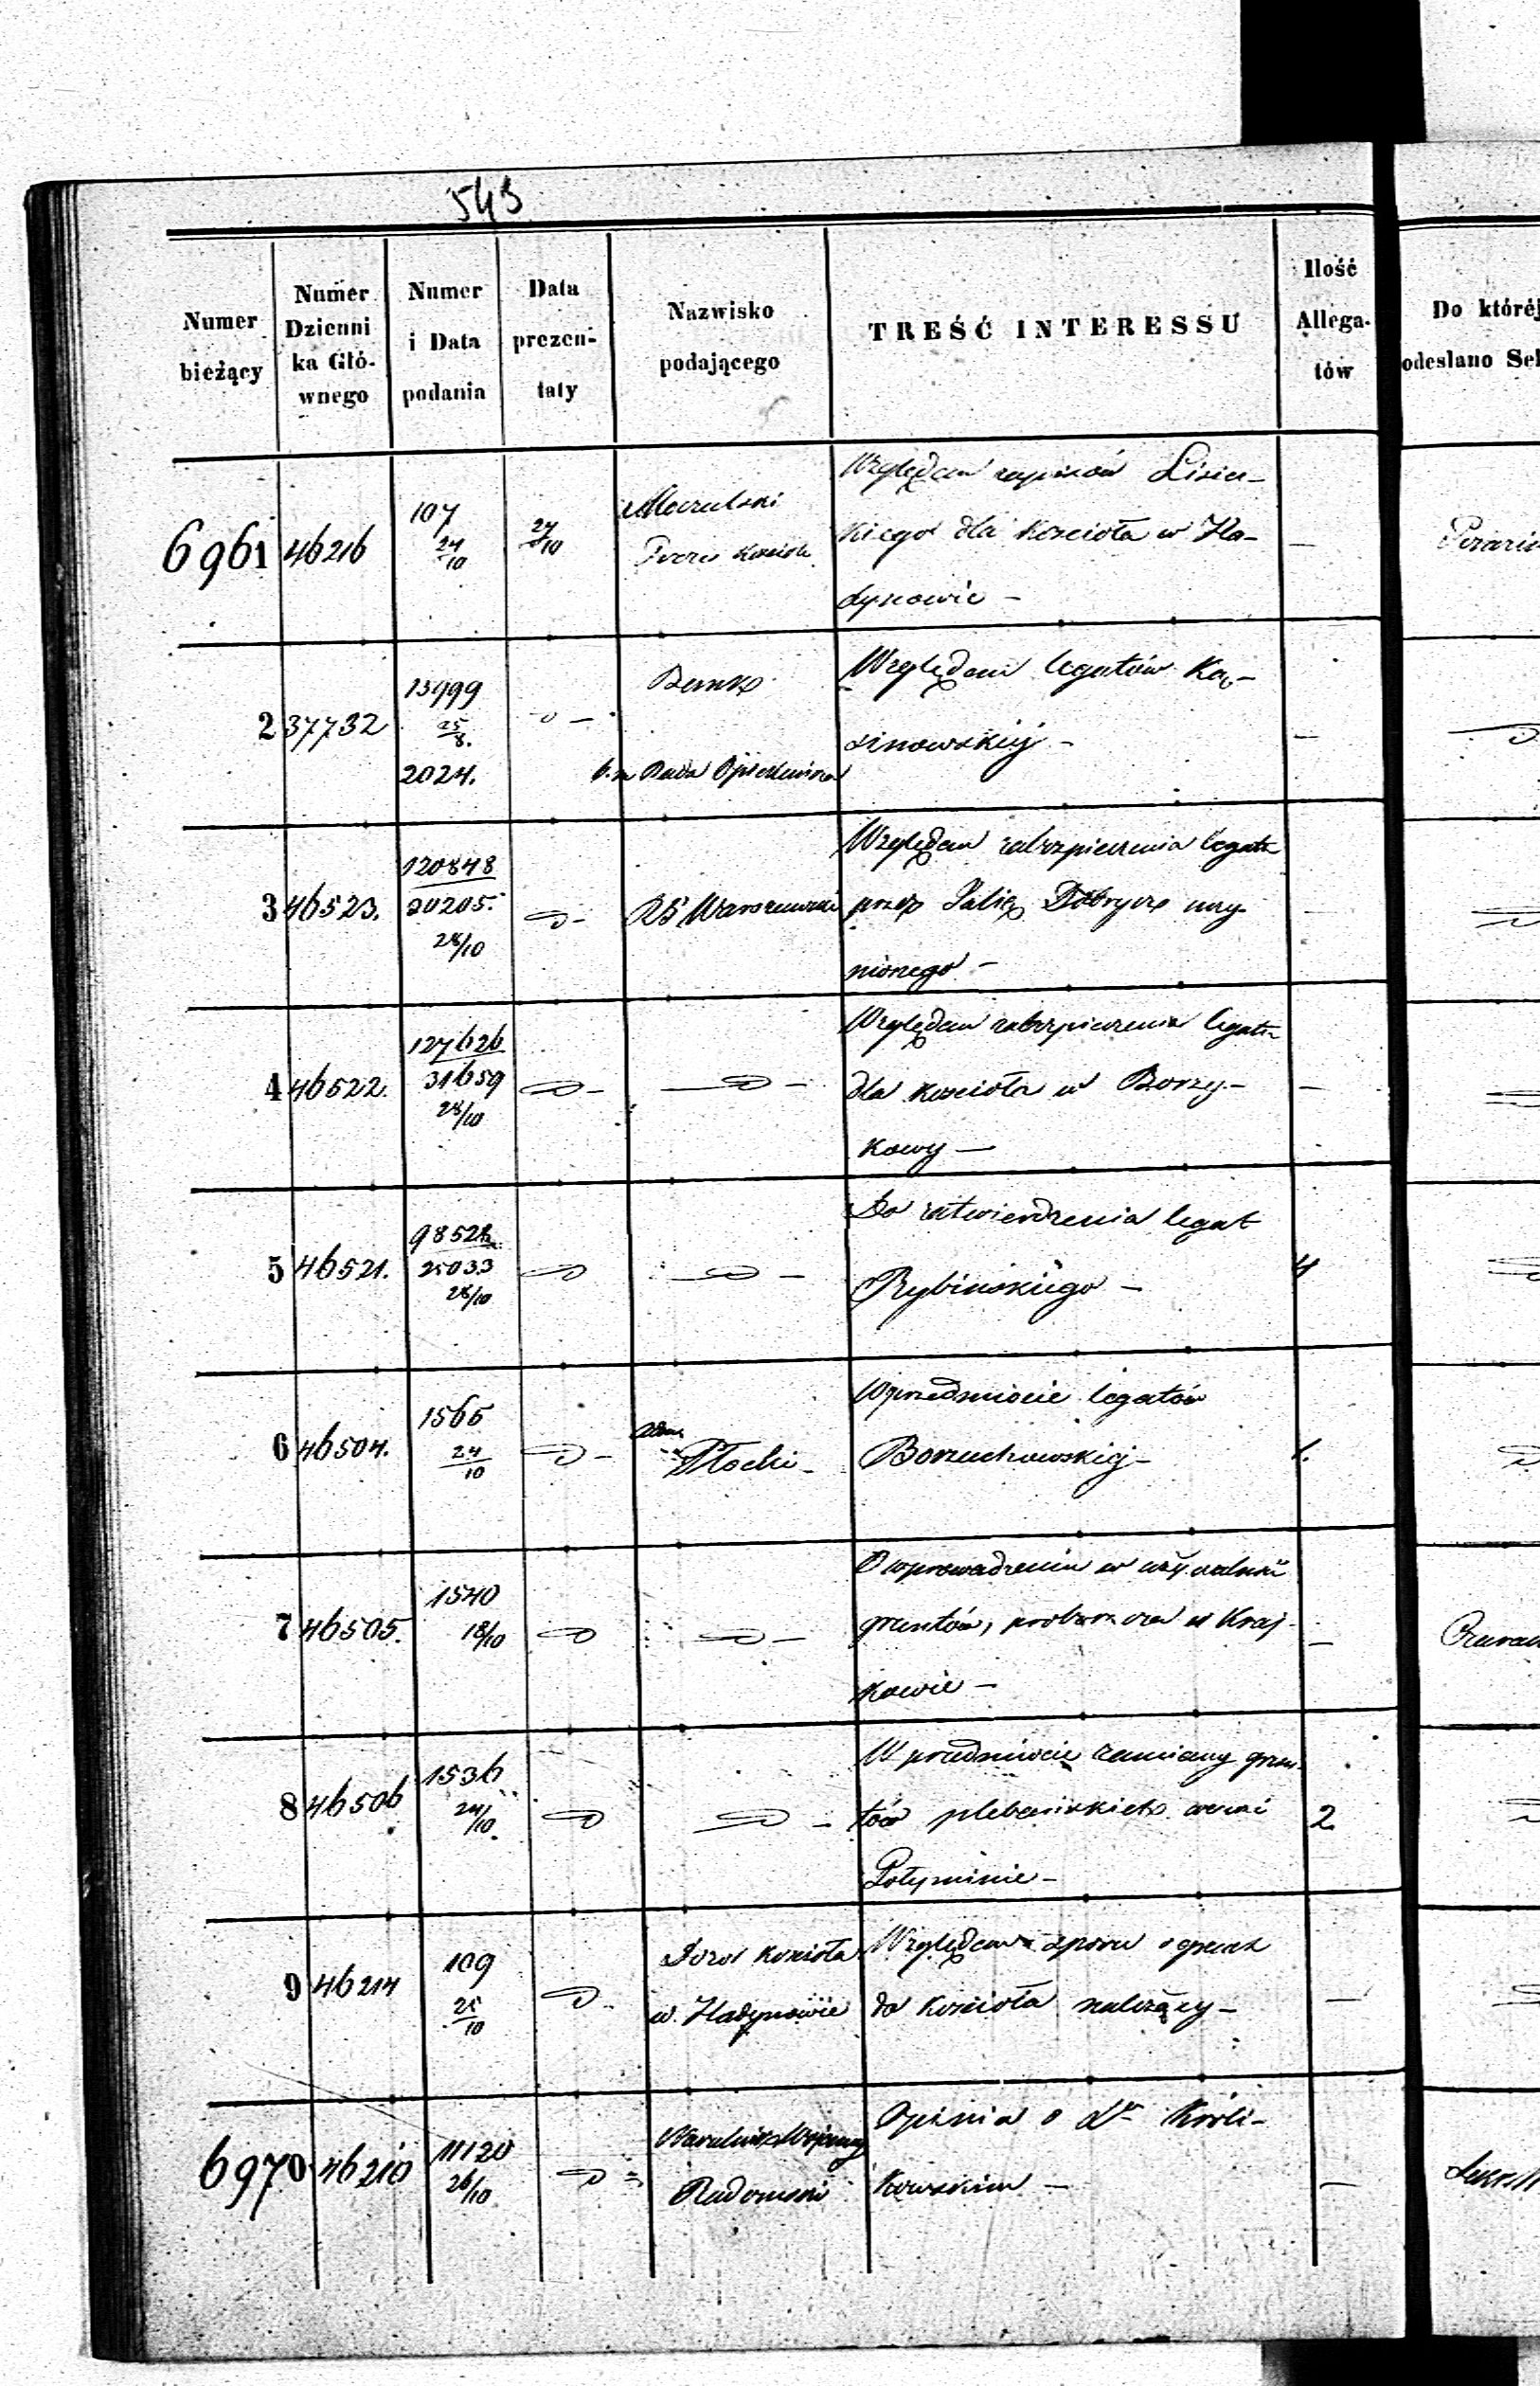 543
Numer bieżący
Numer Dzienni ka Głó- wnego
Numer i Data podania
Data prezen- taty
Nazwisko podającego
TREŚĆ INTERESSU
Ilość Allega- tów
Do któréj
odesłano
6961 46216
107
24/10
27/10
Kościoła
Względem zapisów Lisiec-
kiego dla kościoła w Ha-
dynowie -
2 37732
13999
25/8.
2024.
Banku
Rada Opiekuńcza
Względem legatów Ka-
sinowskiej -
3 46523.
120848
20205.
28/10
RG Warszawski
Względem zabezpieczenia legatu
przez Dobrycz uczy-
nionego -
4 46522.
127626
31659
28/10
Względem zabezpieczenia legatu
dla kościoła w Borzy-
kowy -
5 46521.
98528
25033
28/10
Do zatwierdzenia legat
Rybińskiego -
4
6 46504.
1565
24/10
Płocki -
W przedmiocie legatów
Borzuchowskiej -
1.
7 46505.
1540
18/10
O wprowadzeniu w
gruntów, proboszcza w Kraj-
kowie -
8 46506
1536
24/10
W przedmiocie zamiany grun-
tów plebańskich we wsi
Potyminie -
2
9 46214
109
25/10
Dozór kościoła
w Hadynowie
Względem sporu o grunt
do kościoła należący -
6970 46210
11120
26/10
Naczelnik Wojenny
Radomski
Opinia o Król-
kowskim -